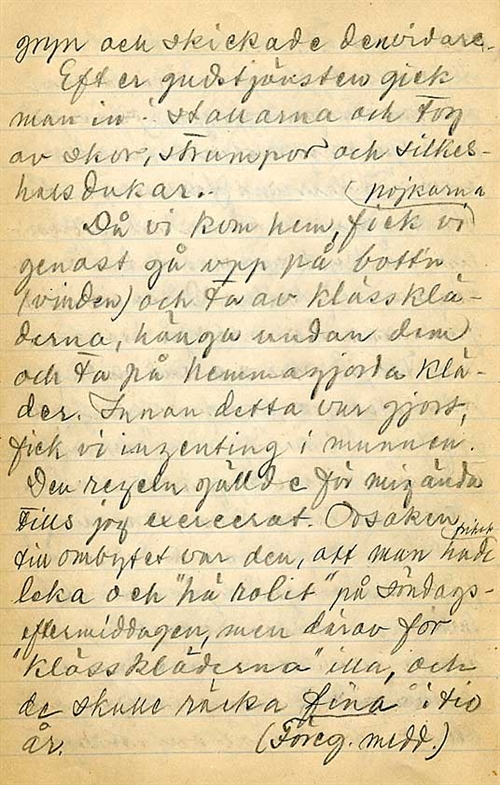 gryn och skickade den vidare.
Efter gudstjänsten gick
man in i stallarna och tog
av skor, strumpor och silkes-
halsdukar. (pojkarna
Då vi kom hem, fick vi)
genast gå upp på bott'n
(vinden) och ta av klässklä-
derna, hänga undan dem
och ta på hemmagjorda klä-
der. Innan detta var gjort,
fick vi ingenting i munnen.
Den regeln gällde för mig ända
tills jag exercerat. Orsaken
till ombytet var den, att man hade
frihet
leka och "hä rolit" på söndags-
eftermiddagen, men därav för
"klässkläderna" illa, och
de skulle räcka "fina" i tio
år. (Föreg. medd.)